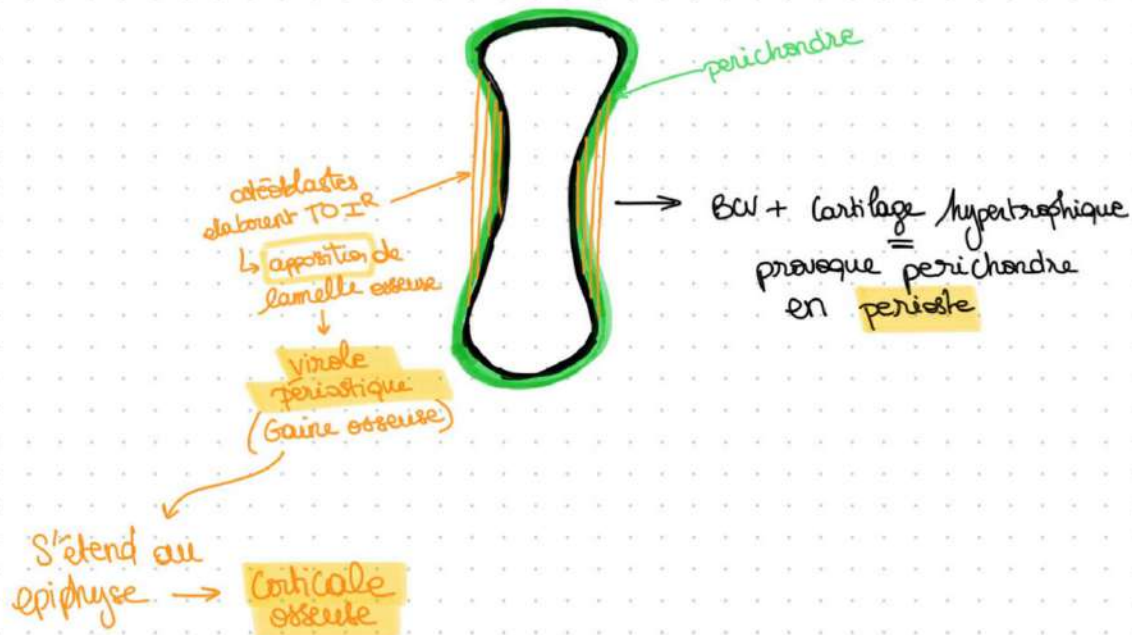 perichondre
ostéoblastes
elaborent TO I^R
↳ apposition de
lamelle osseuse
virole
périostique
(Gaine osseuse)
S'étend au
epiphyse → Corticale
osseuse
→ BCV + Cartilage hypertrophique
=
provoque perichondre
en perioste